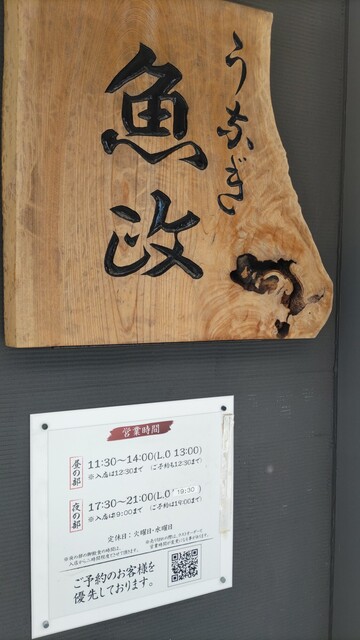 うなぎ
魚政
営業時間
昼の部
11:30～14:00(L.O 13:00)
※入店は12:30まで (ご予約も12:30まで)
夜の部
17:30～21:00(L.O 19:30)
※入店は19:00まで (ご予約は19:00まで)
定休日：火曜日・水曜日
ご予約のお客様を
優先しております。